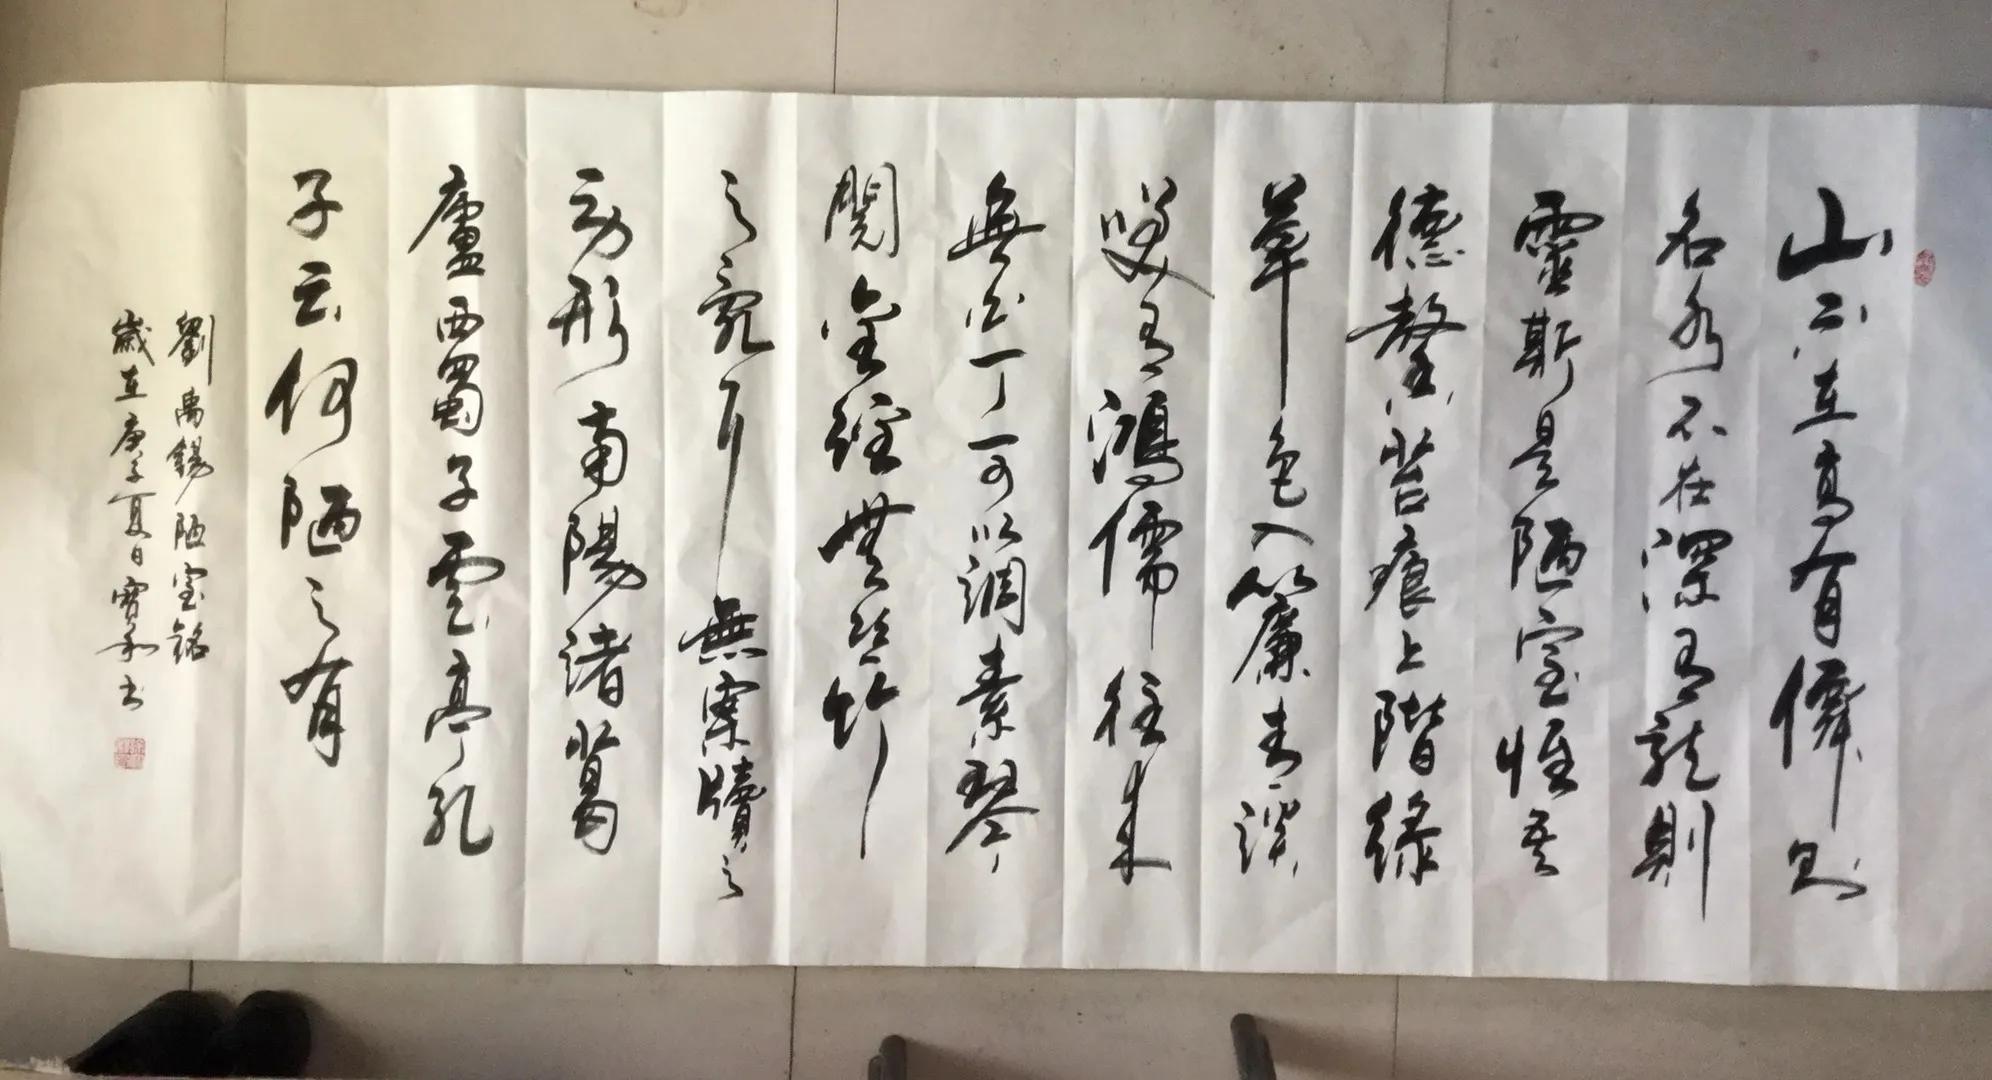 山不在高有僊则
名水不在深有龍則
靈斯是陋室惟吾
德馨苔痕上階緑
草色入簾青談
笑有鴻儒往来
無白丁可以調素琴
閲金經無丝竹
之亂耳無案牘之
劳形南陽諸葛
廬西蜀子雲亭孔
子云何陋之有
劉禹錫陋室銘
歲在庚子夏日寶书